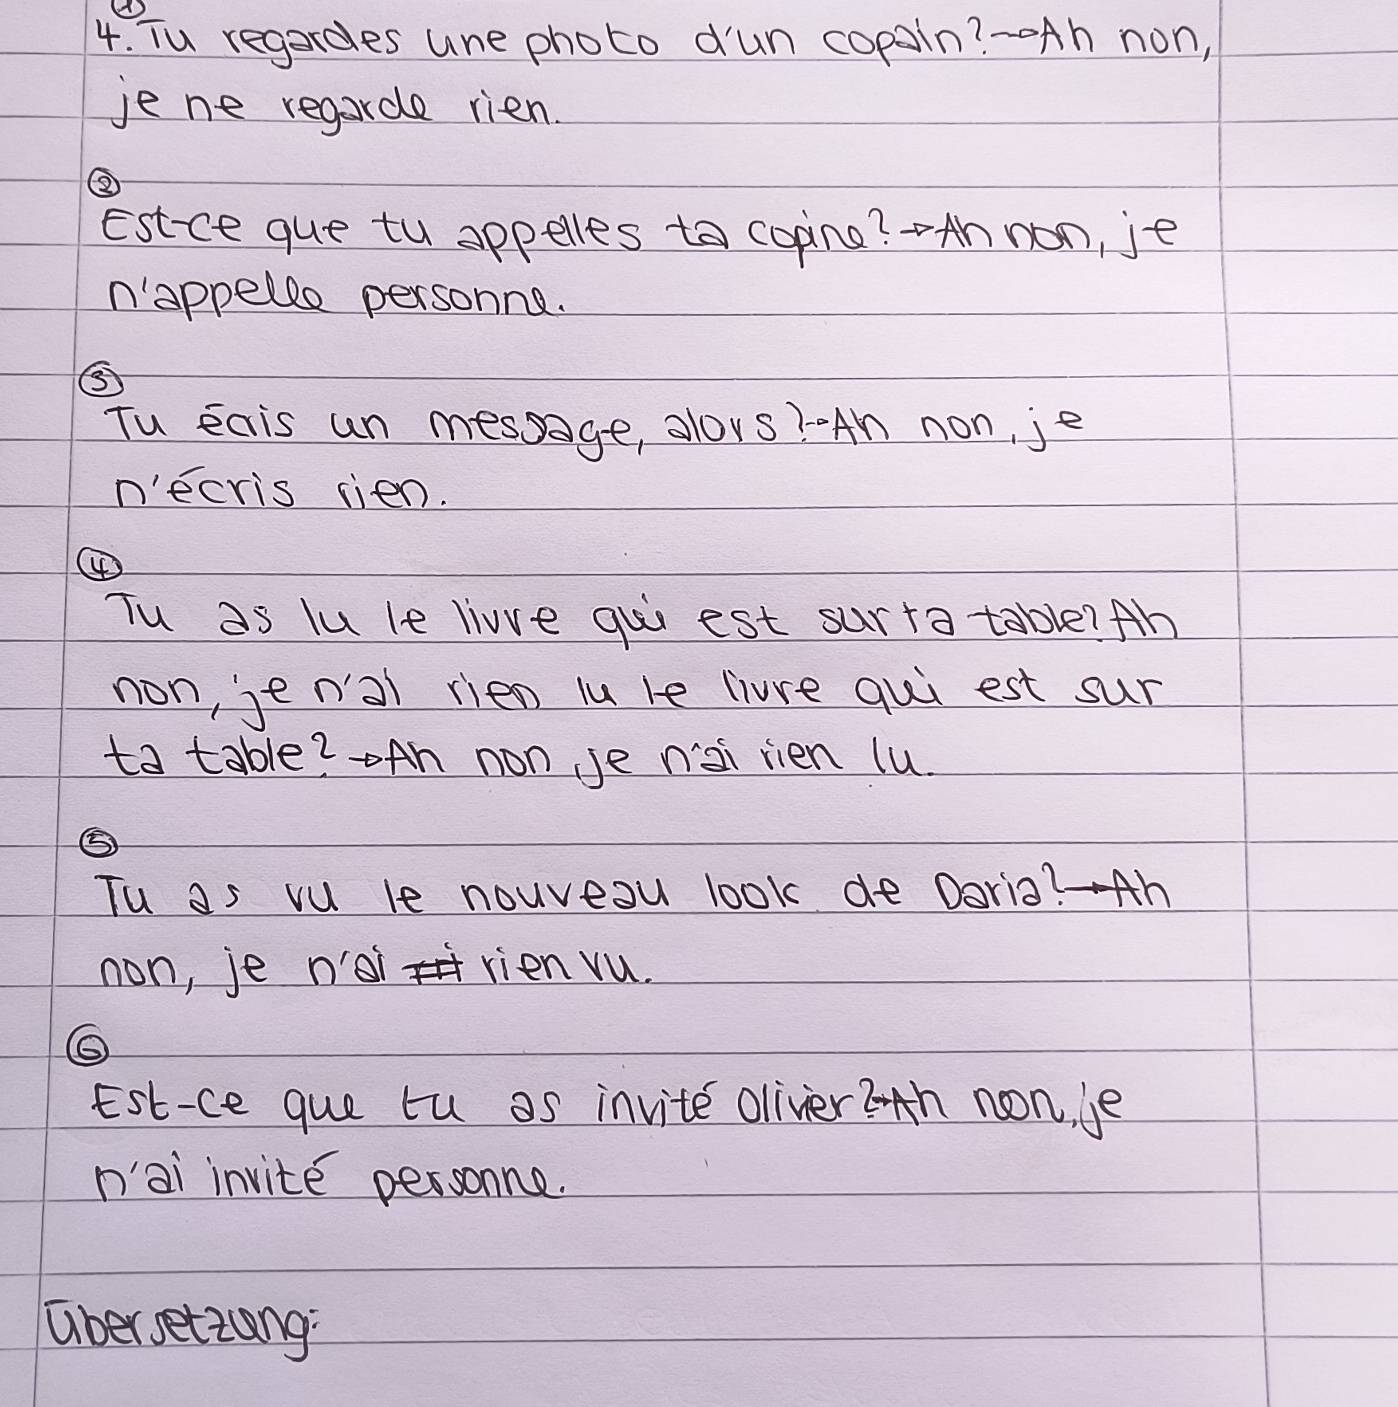 ①
4. Tu regardes une photo d'un copain? → Ah non,
je ne regarde rien.
②
Est-ce que tu appelles ta copine? → Ah non, je
n'appelle personne.
③
Tu écris un message, alors? → Ah non, je
n'écris rien.
④
Tu as lu le livre qui est sur ta table? Ah
non, je n'ai rien lu le livre qui est sur
ta table? → Ah non, je n'ai rien lu.
⑤
Tu as vu le nouveau look de Daria? → Ah
non, je n'ai rien vu.
⑥
Est-ce que tu as invité Olivier? → Ah non, je
n'ai invité personne.
Übersetzung: